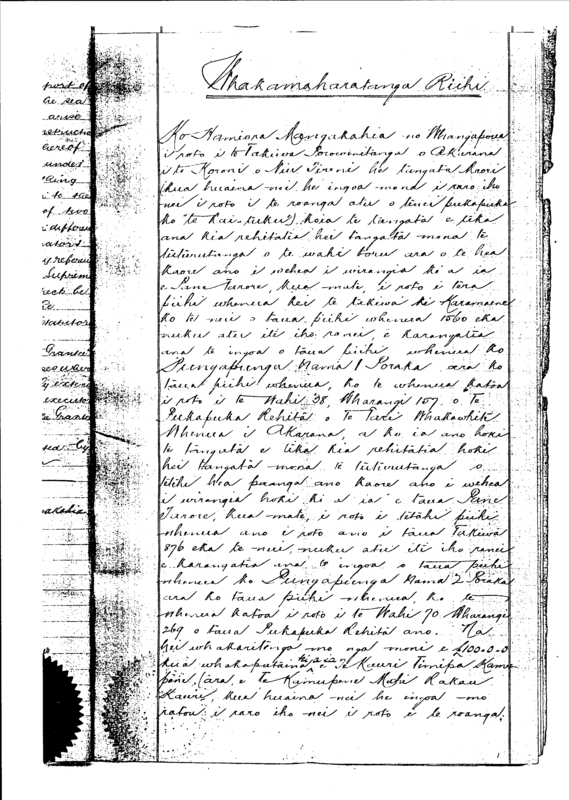 port of
he sea
arise
hereof
under
to the
of two
differen
ators
Supreme
be
Grantee
executor
Grante
Whakamaharatanga Riihi
Ko Hamiora Mangakahia no Whangapoua
i roto i te Takiwa Porowinitanga o Akarana
i te Koroni o Niu Tireni he tangata Maori
(kua huaina nei he ingoa mona i raro iho
nei i roto i te roanga atu o tenei pukapuka
ko te Kai-tuku), koia te tangata e tika
ana kia rehitatia hei tangata mona te
tuturutanga o te wahi toru ara o te hea
kaore ano i wehea i wirangia ki a ia
e Pane Tarore, kua mate, i roto i tera
piihi whenua kei te takiwa ki
ko te nui o taua piihi whenua 1560 eka
nuku atu iti iho ranei, e karangatia
ana te ingoa o taua piihi whenua ko
Pungapunga Nama 1 Poraka ara ko
taua piihi whenua, ko te whenua katoa
i roto i te Wahi 38, Wharangi 107 o te
Pukapuka Rehita o te Tari Whakawhiti
Whenua i Akarana, a ko ia ano hoki
te tangata e tika kia rehitatia hoki
hei tangata mona te tuturutanga o
tetihi hea paanga ano kaore ano i wehea
i wirangia hoki ki a ia e taua Pane
Tarore, kua mate, i roto i tetahi piihi
whenua ano i roto ano i taua Takiwa
876 eka te nui, nuku atu iti iho ranei
e karangatia ana te ingoa o taua piihi
whenua ko Pungapunga Nama 2 Poraka
ara ko taua piihi whenua, ko te
whenua katoa i roto i te Wahi 70 Wharangi
269 o taua Pukapuka Rehita ano. Na
hei whakaritenga mo nga moni e £100.0.0
kua whakaputaina ki a ia e te Kauri Timipa Kamu-
pene, (ara, e te Kamupene Rakau
Kauri, kua huaina nei he ingoa mo
ratou i raro iho nei i roto i te roanga